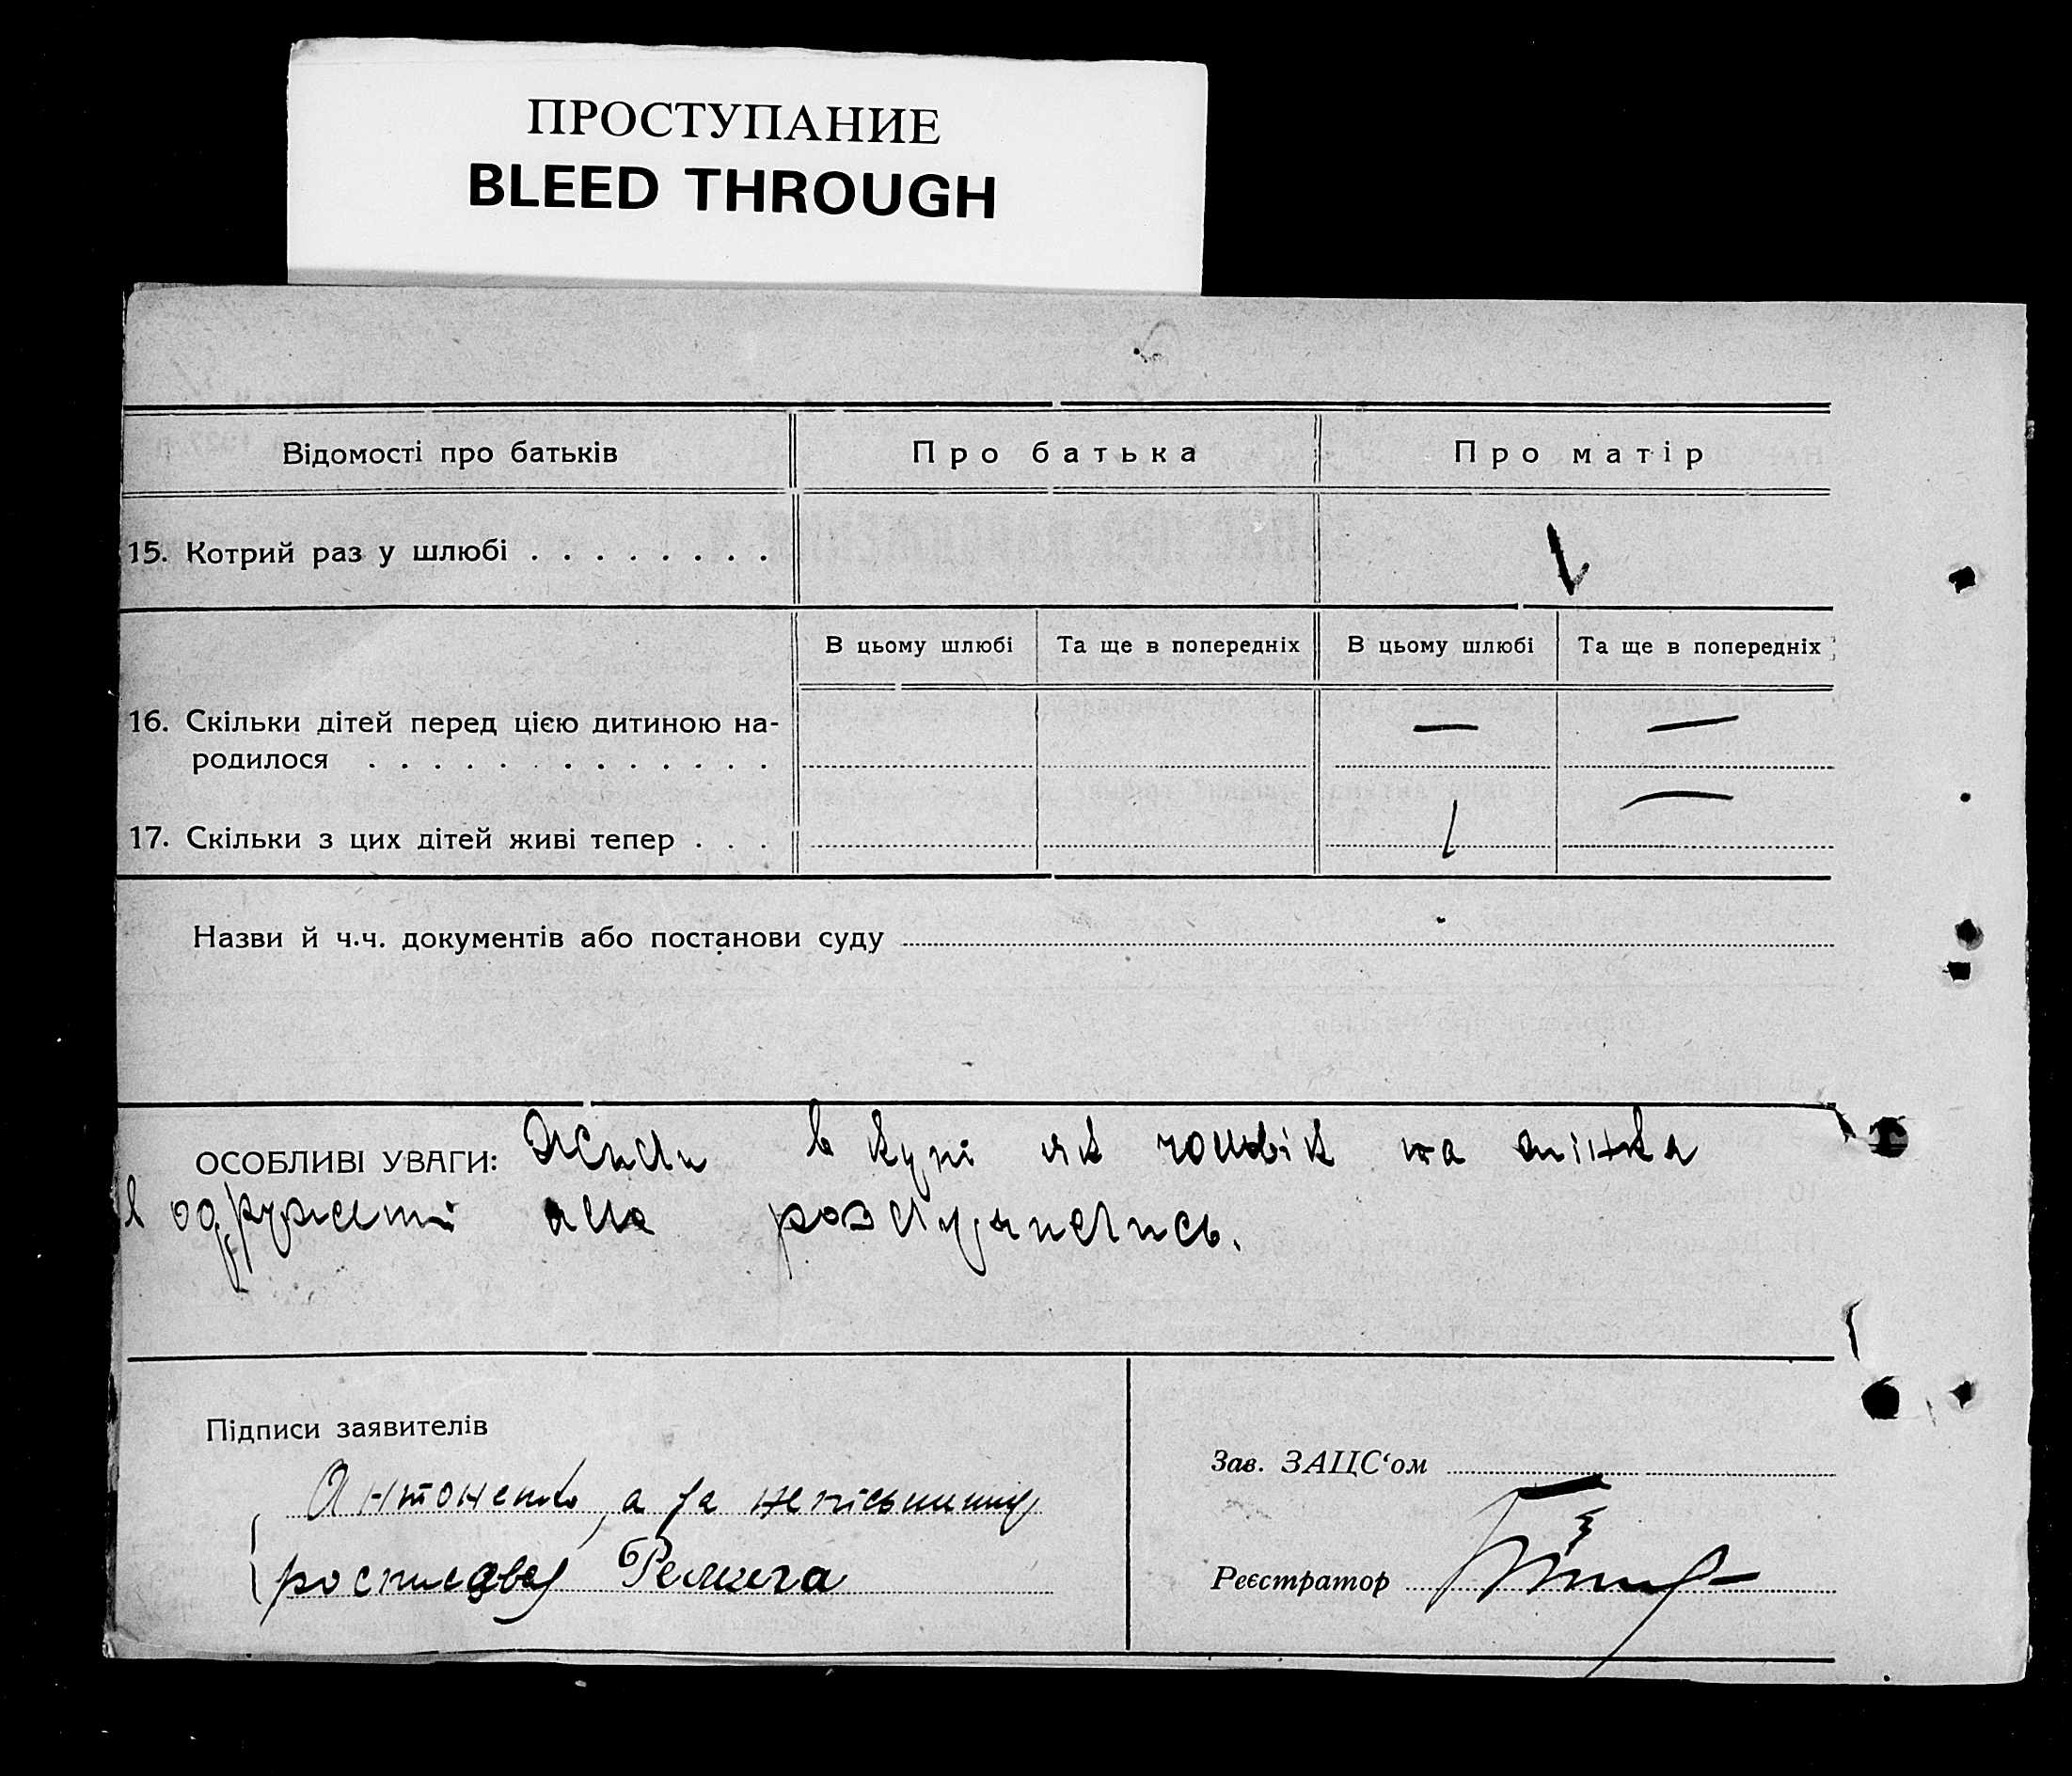 ПРОСТУПАНИЕ
BLEED THROUGH
Відомості про батьків Про батька Про матір
15. Котрий раз у шлюбі
В цьому шлюбі Та ще в попередніх В цьому шлюбі Та ще в попередніх
16. Скільки дітей перед цією дитиною на-
родилося — —
17. Скільки з цих дітей живі тепер 1 —
Назви й ч.ч. документів або постанови суду
ОСОБЛИВІ УВАГИ: Жили в купі як чоловік та жінка
в одружетті але
Підписи заявителів
Антоненко, а за неписьменну
росписався
Зав. ЗАЦС‘ом
Реєстратор